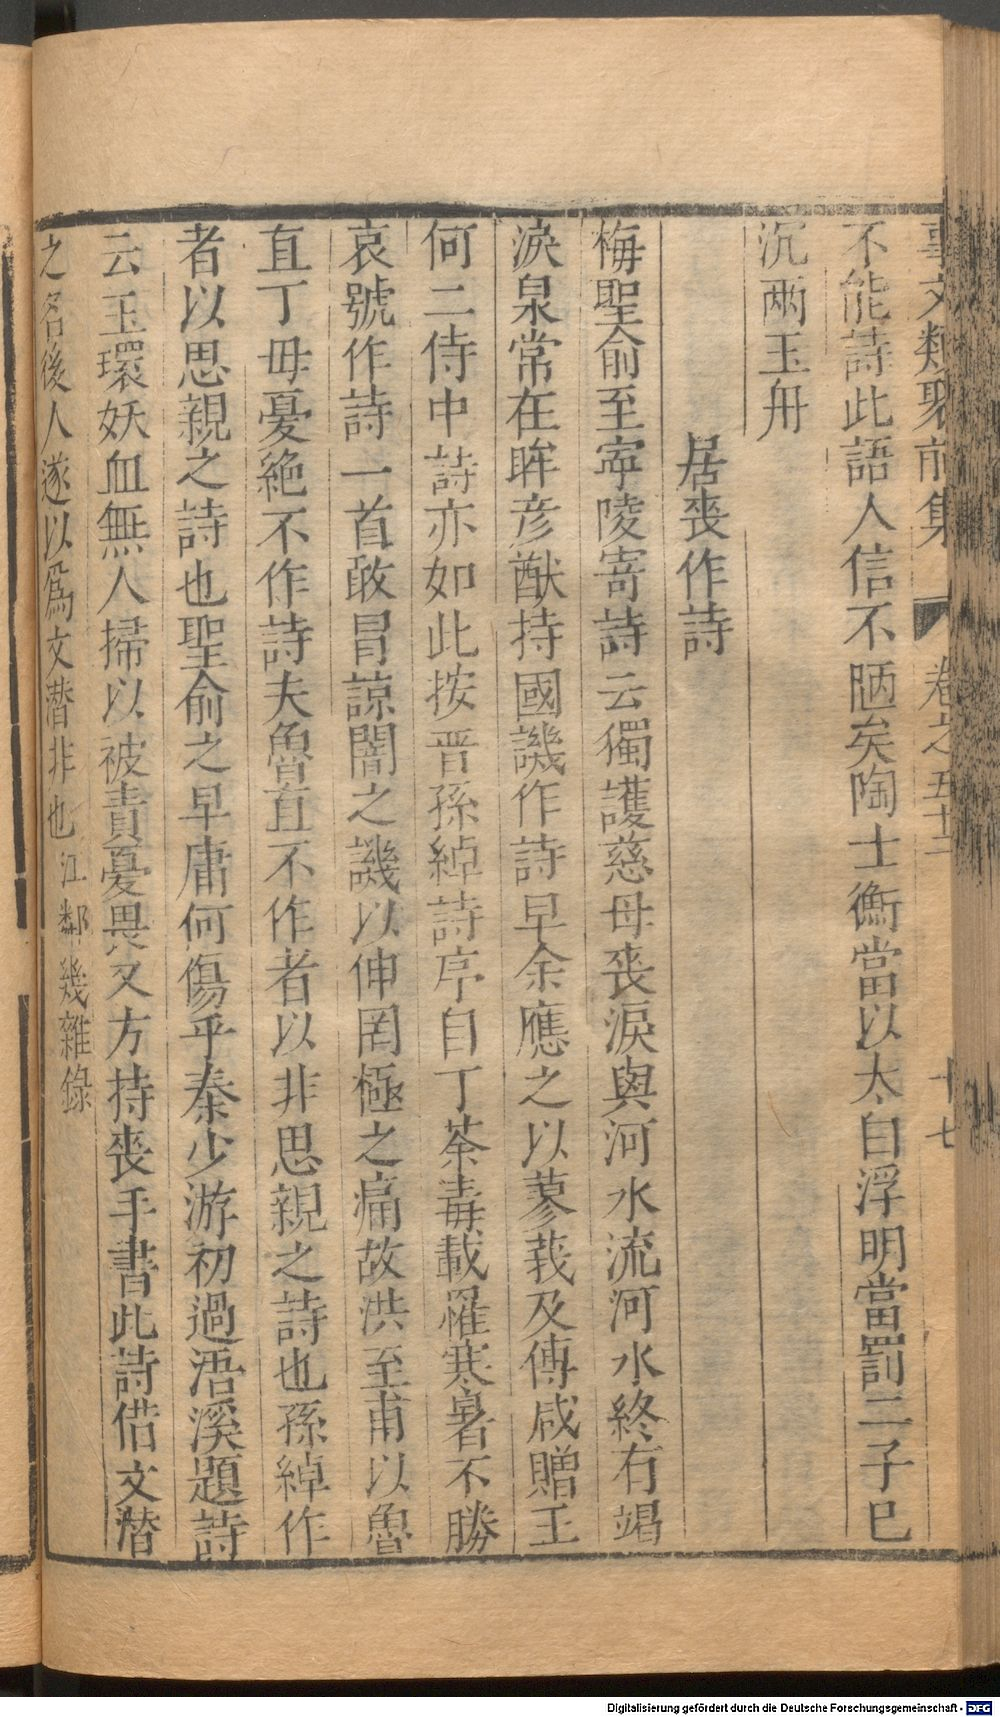 事文類聚前集 卷之五十二 十七
不能詩此語人信不陋矣陶士衡當以太白浮明當罰二子已
沉兩玉舟
居喪作詩
梅聖俞至寧陵寄詩云獨護慈母喪淚與河水流河水終有竭
淚泉常在眸彦猷持國譏作詩早余應之以蓼莪及傅咸贈王
何二侍中詩亦如此按晋孫綽詩序自丁荼毒載罹寒暑不勝
哀號作詩一首敢冒諒闇之譏以伸罔極之痛故洪至甫以魯
直丁母憂絶不作詩夫魯直不作者以非思親之詩也孫綽作
者以思親之詩也聖俞之早庸何傷乎秦少游初過浯溪題詩
云玉環妖血無人掃以被責憂畏又方持喪手書此詩借文潛
之名後人遂以爲文潛非也 江鄰幾雜錄
Digitalisierung gefördert durch die Deutsche Forschungsgemeinschaft - DFG